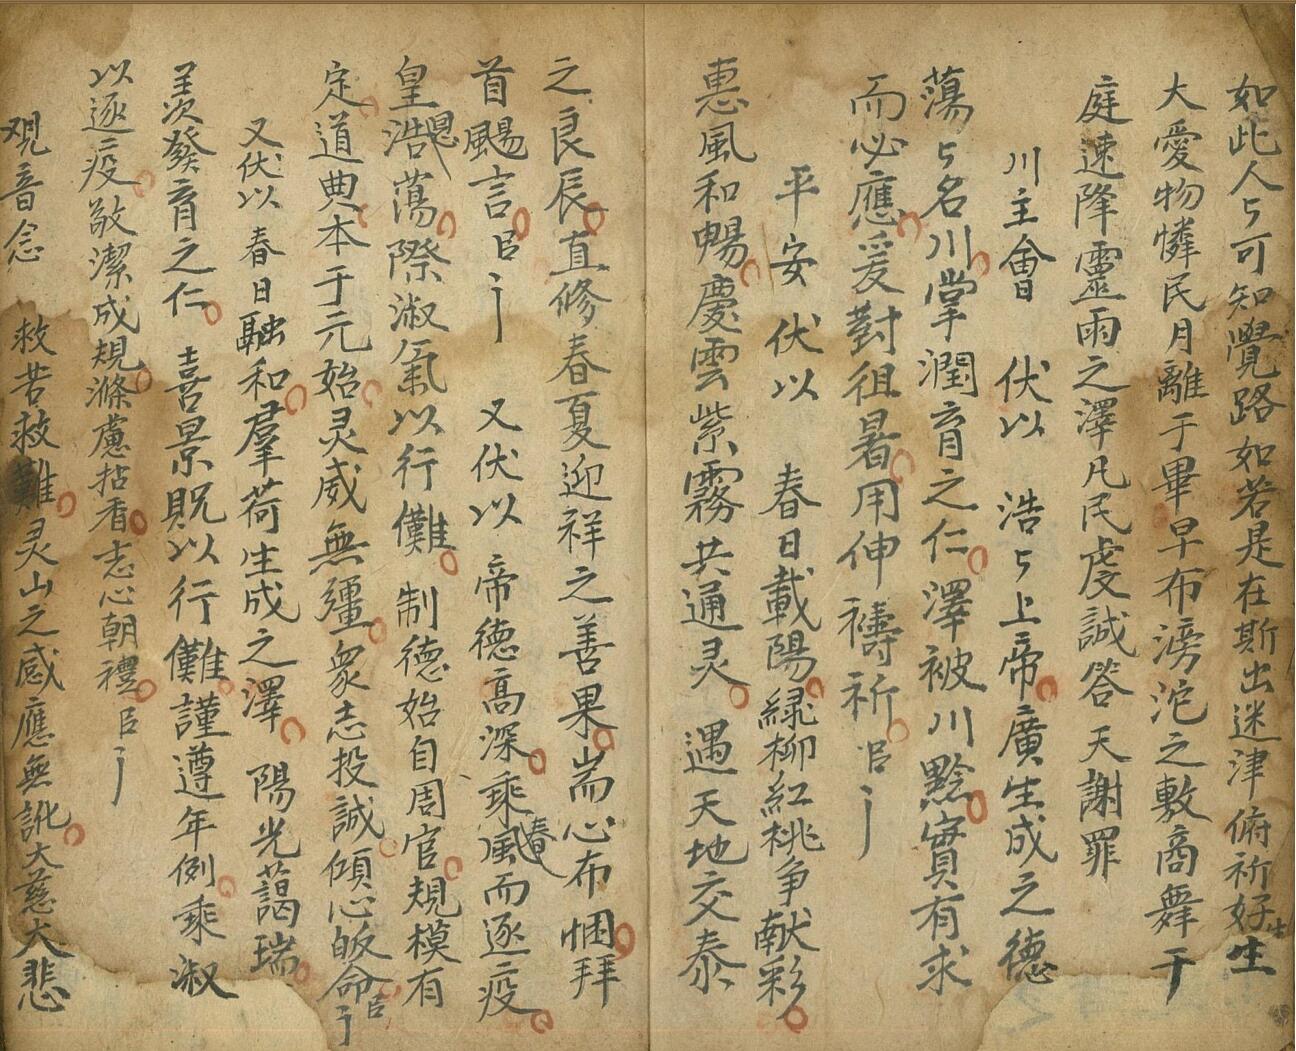 如此人々可知覺路如若是在斯出迷津俯祈好生
大愛物憐民月離于畢早布滂沱之敷商舞于
庭速降靈雨之澤凡民虔誠答天謝罪
川主會 伏以 浩々上帝廣生成之德
蕩々名川掌潤育之仁澤被川黔實有求
而必應爰對徂暑用伸禱祈臣
平安 伏以 春日載陽緑柳紅桃争献彩
惠風和暢慶雲紫霧共通灵 遇天地交泰
之良辰直修春夏迎祥之善果耑心布悃拜
首颺言臣 又伏以 帝德高深乘春風而逐疫
皇恩浩蕩際淑氣以行儺 制德始自周官規模有
定道典本于元始灵威無疆衆志投誠傾心皈命臣
又伏以 春日融和羣荷生成之澤 陽光藹瑞
羨發育之仁 喜景貺以行儺謹遵年例乘淑
以逐疫敬潔成規滌慮拈香志心朝禮臣
观音念 救苦救難灵山之感應無訛大慈大悲